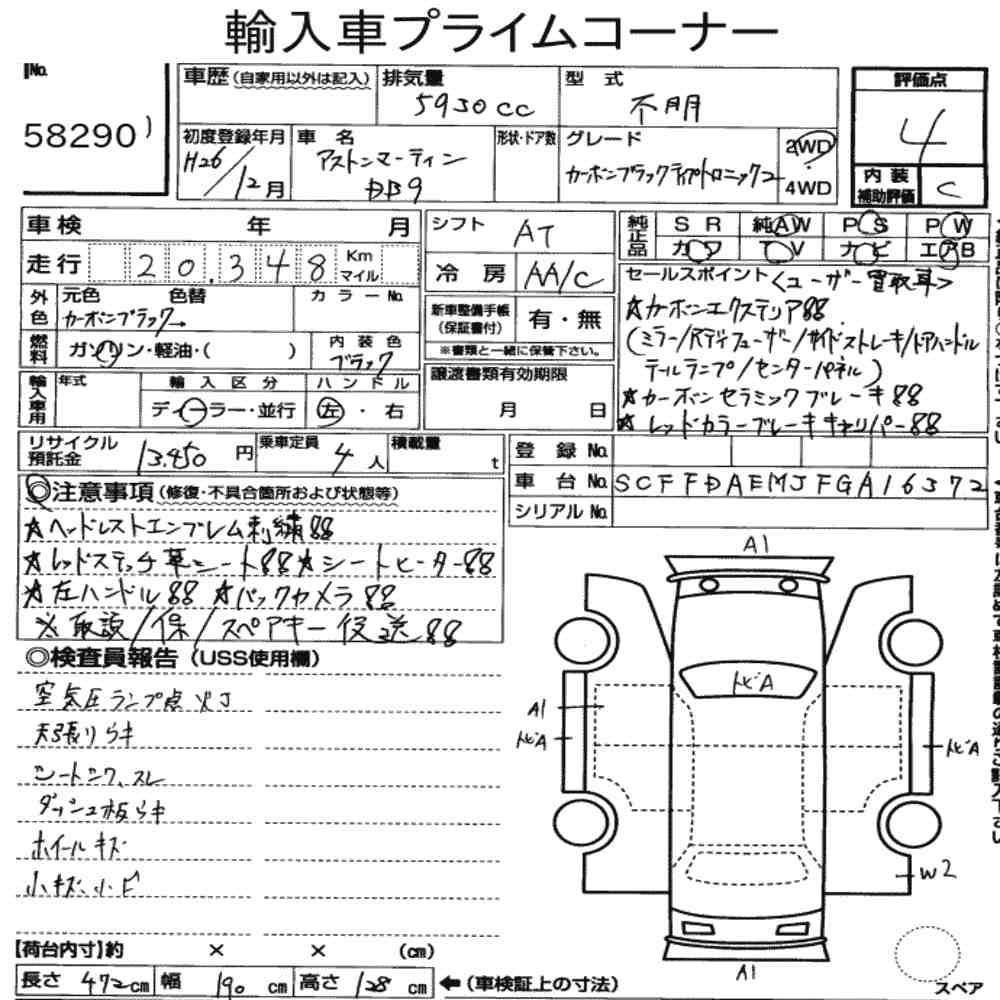 輸入車プライムコーナー
No.
58290
車歴 (自家用以外は記入)
排気量
5930cc
型式
不明
評価点
4
初度登録年月
H26/12月
車名
アストンマーティン
DB9
形状・ドア数
グレード
カーボンブラックティプトロニック2
2WD
4WD
内装
補助評価
C
車検 年 月
シフト
AT
純正品
SR 純AW PS PW
カワ TV ナビ エアB
走行 20,348 Km
マイル
冷房
AA/C
セールスポイント <ユーザー買取車>
外色
元色 色替
カラーNo.
カーボンブラック→
新車整備手帳
(保証書付)
有・無
※書類と一緒に保管下さい。
★カーボンエクステリア88
(ミラー/Rディフューザー/サイドストレーキ/ドアハンドル
テールランプ/センターパネル)
★カーボンセラミックブレーキ88
★レッドカラーブレーキキャリパー88
燃料
ガソリン・軽油・( )
内装色
ブラック
輸入車用
年式
輸入区分
ハンドル
ディーラー・並行
左・右
譲渡書類有効期限
月 日
リサイクル
預託金
13,450円
乗車定員
4人
積載量
t
登録No.
車台No. SCFFDAEMJFGA16372
シリアルNo.
◎注意事項 (修復・不具合箇所および状態等)
★ヘッドレストエンブレム刺繍88
★レッドステッチ革シート88 ★シートヒーター88
★左ハンドル88 ★バックカメラ88
※取説/保/スペアキー後送88
◎検査員報告 (USS使用欄)
空気圧ランプ点灯
天張りキ
シートシワ、スレ
ダッシュ板キ
ホイールキズ
小キズ、小E
A1
トビA
A1
トビA
トビA
W2
A1
スペア
【荷台内寸】約 × × (cm)
長さ 472cm 幅 190cm 高さ 128cm
←(車検証上の寸法)